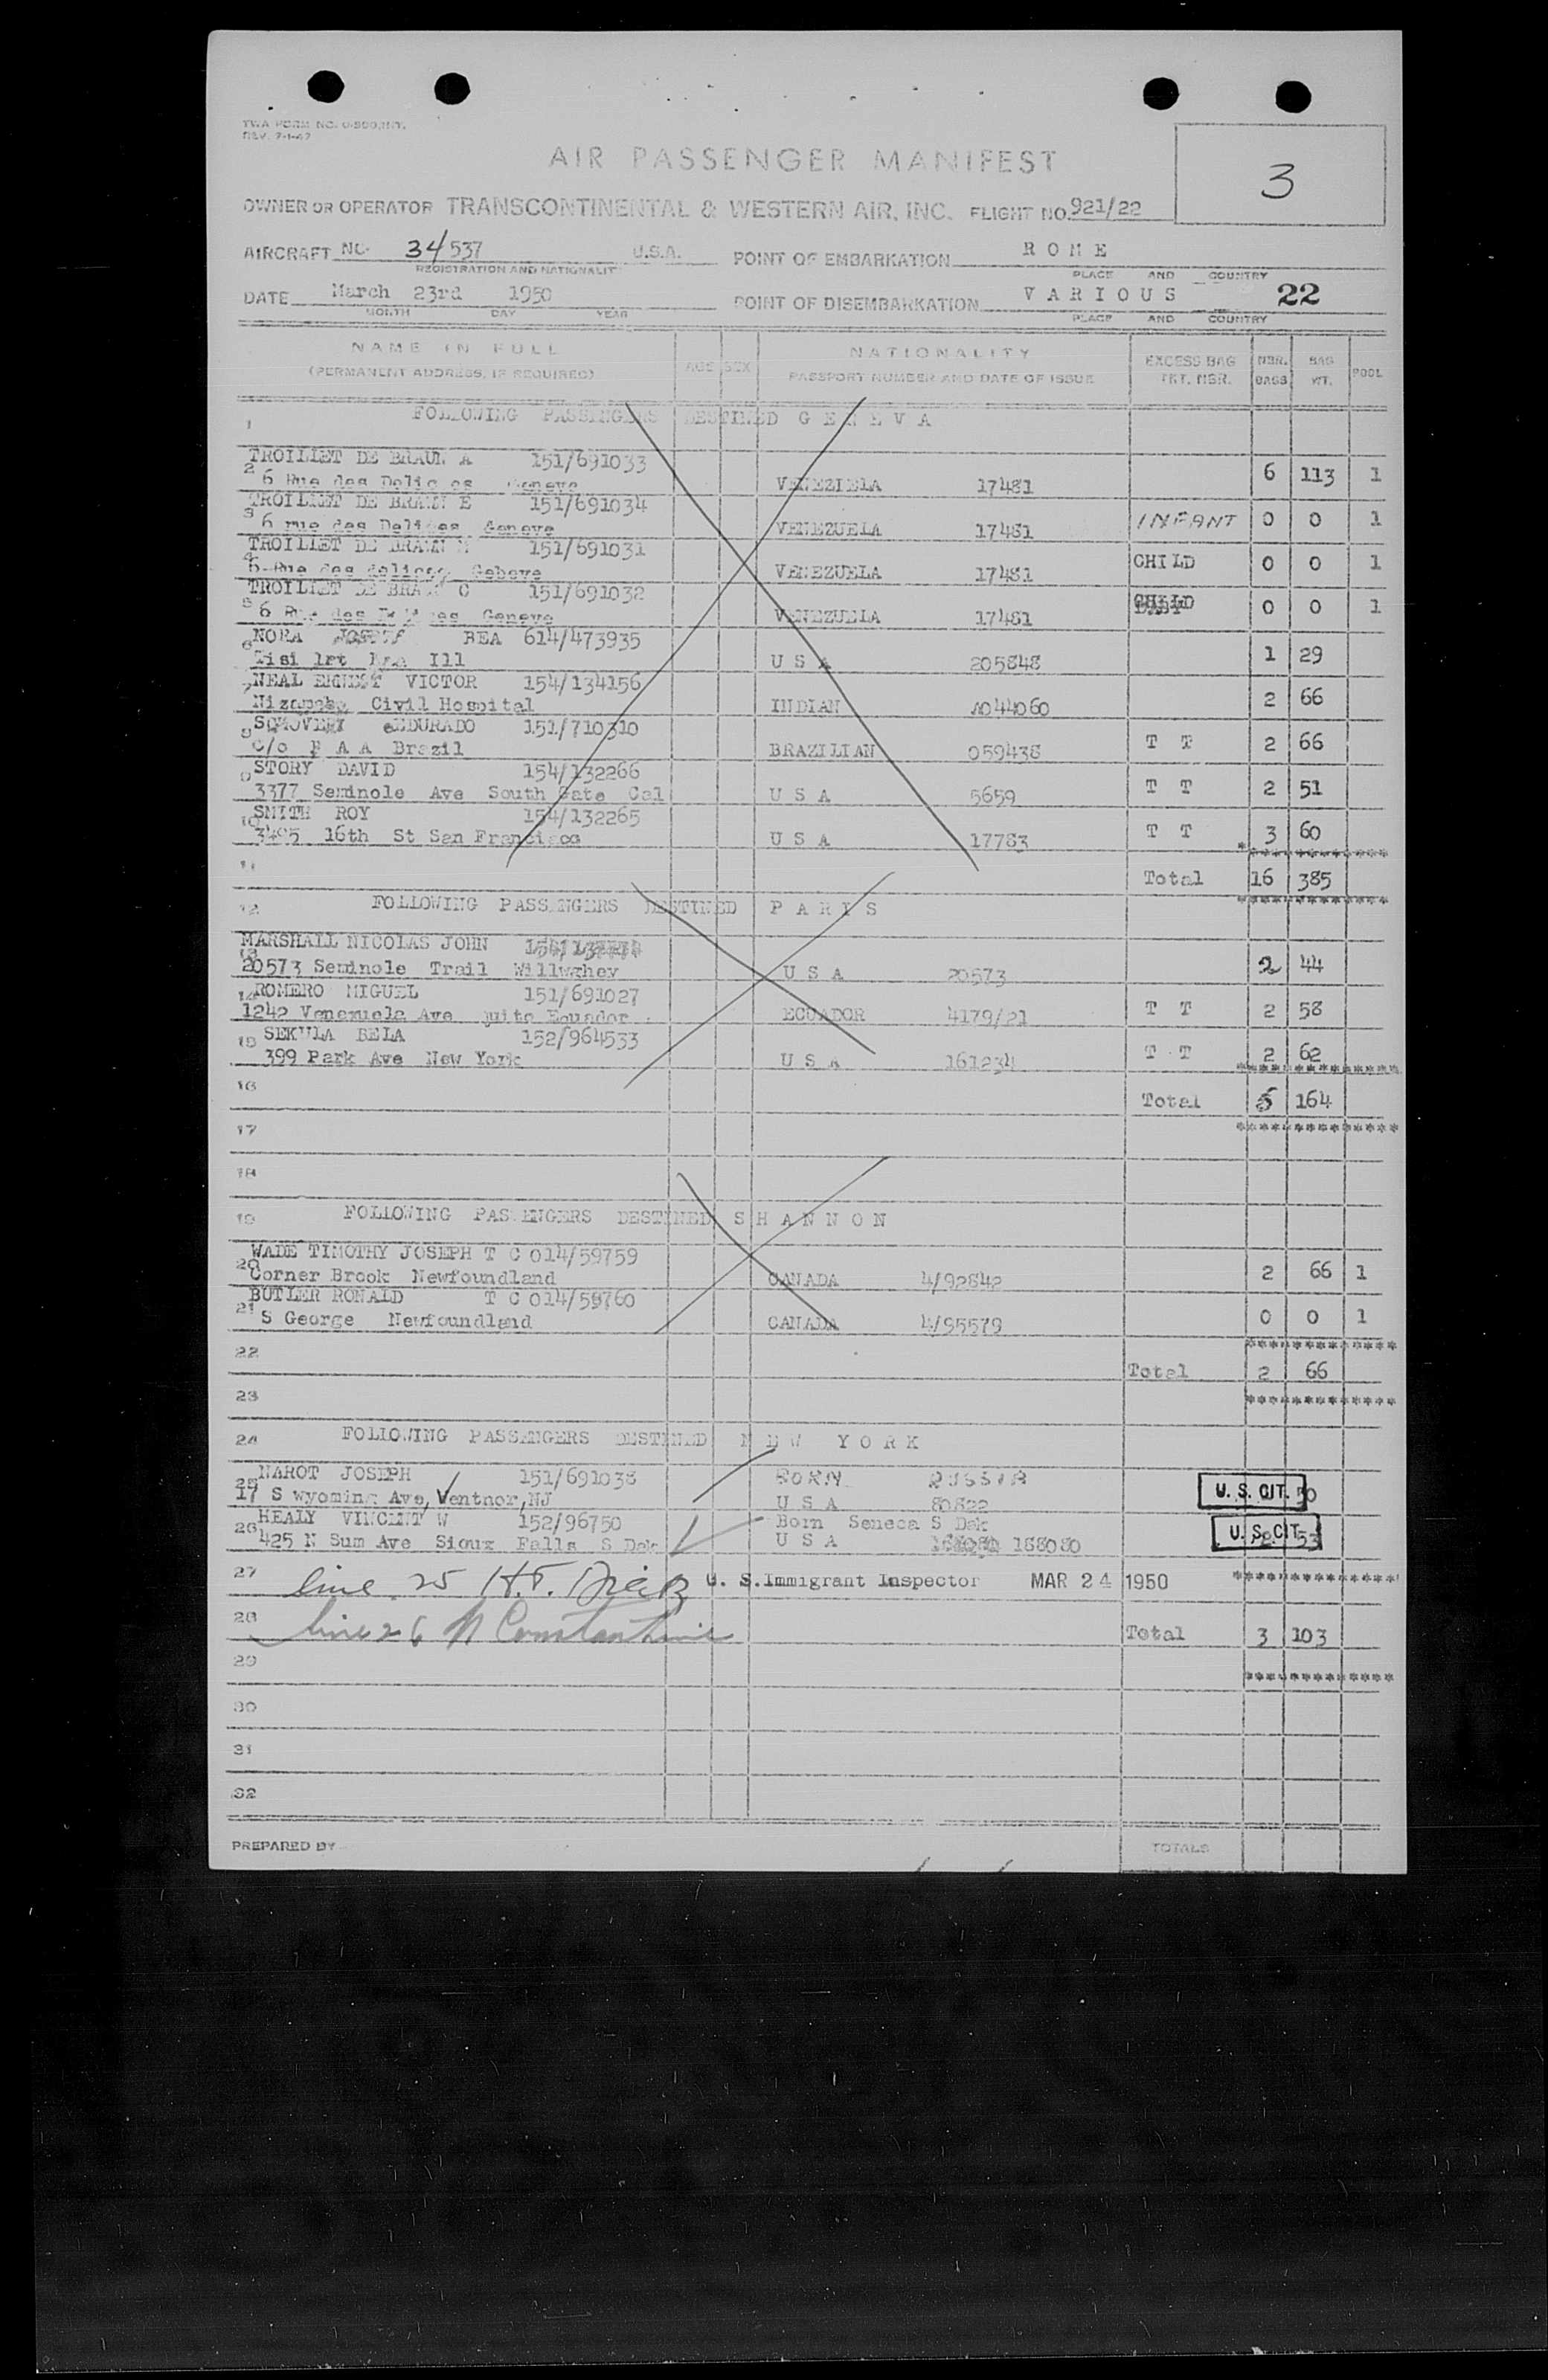 TWA FORM NO. O-500,INT.
REV. 7-1-47
AIR PASSENGER MANIFEST
3
OWNER OR OPERATOR TRANSCONTINENTAL & WESTERN AIR, INC. FLIGHT NO. 921/22
AIRCRAFT NO. 34537 U.S.A. POINT OF EMBARKATION ROME
REGISTRATION AND NATIONALITY PLACE AND COUNTRY
DATE March 23rd 1950 POINT OF DISEMBARKATION VARIOUS 22
MONTH DAY YEAR PLACE AND COUNTRY
NAME IN FULL (PERMANENT ADDRESS, IF REQUIRED) AGE SEX NATIONALITY PASSPORT NUMBER AND DATE OF ISSUE EXCESS BAG TKT. NBR. NBR. BAGS BAG WT. POOL
1 FOLLOWING PASSENGERS DESTINED GENEVA
TROILLET DE BRAUN A 151/691033
2 6 Rue des Geneve VENEZIELA 17481 6 113 1
TROILLET DE BRAUN E 151/691034
3 6 rue des Delices Geneve VENEZUELA 17481 INFANT 0 0 1
TROILLET DE BRAUN M 151/691031
4 6 Rue des Gebeve VENEZUELA 17481 CHILD 0 0 1
TROILLET DE BRAUN C 151/691032
5 6 Rue des Geneve VENEZUELA 17481 CHILD 0 0 1
NORA BEA 614/473935
6 Ill U S A 205848 1 29
NEAL ERNEST VICTOR 154/134156
7 Civil Hospital INDIAN A044060 2 66
151/710310
8 c/o P A A Brazil BRAZILIAN 059438 T T 2 66
STORY DAVID 154/132266
9 3377 Seminole Ave South Gate Cal U S A 5659 T T 2 51
SMITH ROY 154/132265
10 3495 16th St San Francisco U S A 17783 T T 3 60
11 Total 16 385
12 FOLLOWING PASSENGERS DESTINED PARIS
MARSHALL NICOLAS JOHN
13 20573 Seminole Trail Willwghey U S A 20573 2 44
ROMERO MIGUEL 151/691027
14 1242 Venezuela Ave Quito Equador ECUADOR 4179/21 T T 2 58
SEKULA BELA 152/964533
15 399 Park Ave New York U S A 161234 T T 2 62
16 Total 164
17
18
19 FOLLOWING PASSENGERS DESTINED SHANNON
WADE TIMOTHY JOSEPH T C 014/59759
20 Corner Brook Newfoundland CANADA 4/92842 2 66 1
BUTLER RONALD T C 014/59760
21 S George Newfoundland CANADA 4/95579 0 0 1
22 Total 2 66
23
24 FOLLOWING PASSENGERS DESTINED NEW YORK
NAROT JOSEPH 151/691038 BORN RUSSIA
25 17 S Wyoming Ave, Ventnor, NJ U S A 80822 U. S. CIT. 50
HEALY VINCENT W 152/96750 Born Seneca S Dak
26 425 N Sum Ave Sioux Falls S Dak U S A 168080 U. S. CIT. 53
27 line 25 H.F. U. S. Immigrant Inspector MAR 24 1950
28 line 26 N Constantine Total 3 103
29
30
31
32
PREPARED BY TOTALS